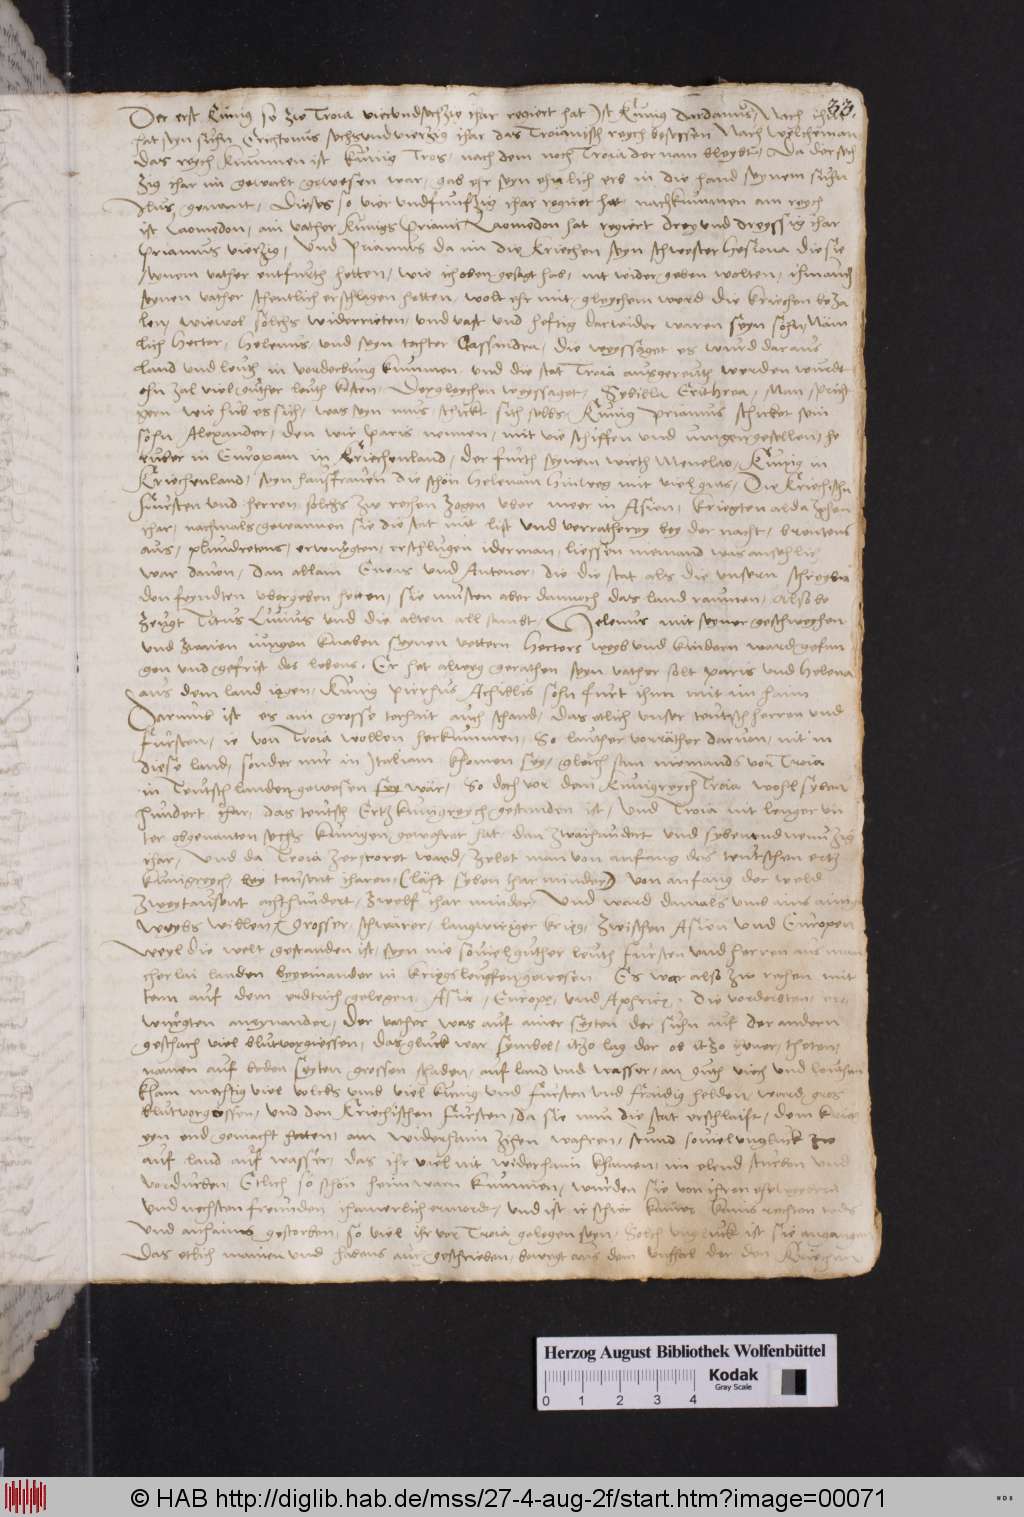 33.
Der erst Künig so zw Troia vierundsechzig ihar regiert hat Ist Künig Dardanus, Nach ihm
hat seyn suhn Erichtonius sechsundvierzig ihar das Troianisch reych besessen Nach welcheman
das reych kummen ist künig Tros, nach dem noch Troia der nam bleybt, Da der sech
zig ihar im gewalt gewesen war, gab ehr seyn ehrlich erb in die hand seynem suhn
Ilus genant, Dieser so vier undfunfzig ihar regirt hat nachkummen am reych
ist Laomedon, ain vather künigs Priami Laomedon hat regiert drey und dreyssig ihar
Priamus vierzig, Und Priamus da im die kriechen seyn schwester Hesiona die sie
seynem vather entfurth hetten, wie ich oben gesagt hab, nit wider geben wolten, ihm auch
seynen vather schentlich erschlagen hetten, wolt ehr mit gleychem werd die kriechen beza
len, wiewol sölchs widerrieten, und vast und heftig darwider waren seyn söhn, Näm
lich Hector, Helenus, und seyn tochter Cassandra, die weyssaget es wurd daraus
Land und leuth in verderbung kummen, und die stat Troia ausgereuth werden wurdt
ohn zal viel guther leuth kosten, Dergleychen weyssaget, Sybilla Erithrea, Man spricht
gern wie hüb es sich, was seyn mus, schickt sich selbs, Künig Priamus schicket sein
söhn Alexander, den wir Paris nennen, mit schiffen und
in Europam in kriechenland, der furth seynem wirth Menelao, Künig in
kriechenland, seyn hausfrauen die schön Helenam hinweg mit viel guts, Die kriechischn
fürsten und herren sölchs zw rechen zogen uber meer in Asien, kriegten alda zehen
ihar, nachmals gewannen sie die stat mit list und verratherey bey der nacht, brentens
aus, plundretens, erwürgten, erschlugen iderman, liessen niemand was
war davon, dan allain Eneas und Antenor, die die stat, als die unsern schreyben
den feyndten ubergeben hetten, sie musten aber dannoch das land raumen, Also be
zeugt Titus Livius und die alten all sambt, Helenus mit seyner geschweyhen
und zwaien iungen knaben seynen vettern Hectors weyb und kindern ward gefan
gen und gefrist des lebens, Er het alweg gerathen seyn vather solt Paris und Helena
aus dem land iagen, Künig Pirrhus Achillis sohn furt ihn mit im haim
Darumb ist es ain grosse torhait auch schand, das etlich unser teutsch herren und
fursten, ie von Troia wollen herkummen, So lauther verräther darvon, nit in
diese land, sonder nur in Italiam khomen sey, gleich sam niemands vor Troia
in Teutsch landen gewesen wär, So doch vor dem künigreych Troia wohl syben
hundert ihar, das teutsch Ertzkünigreych gestanden ist, Und Troia nit lenger un
ter obgenanten sechs künigen gewehret hat, dan zwaihundert und sybenundneunzig
ihar, Und da Troia zerstoret ward, zelet man von anfang des teutschen ertz
künigreych, bey tausent iharen, (läst syben ihar minder) von anfang der weld
zwaytausent achthundert, zwelf ihar minder, Und ward damals umb ains ainigen
weybs willen, Grosser, schwärer, langwiriger krieg, zwischen Asien und Europen
Weyl die welt gestanden ist, seyn nie soviel guther leuth fursten und herren aus man
cherlai landen beyeinander in kriegsleuffen gewesen. Es war also zw rechen mit
tem auf dem erdtrich gelegen, Asia, Europe, und Apfrica, die vordersten, er
würgten aneynander, Der vather was auf ainer seyten der suhn auf der andern
geschach viel blutvergiessen, das gluck war symbol, itzo lag der ob itzo yener, theten,
namen auf beden seyten grossen schaden, auf land und wasser, an guth viech und leuthen
kham mechtig viel volcks umb viel künig und fürsten und freudig helden, ward gros
blutvergiessen, und den kriechischen fürsten, da sie nun die stat erschlaift, dem krieg
eyn end gemacht hetten, am widerhaim zihen wahren, stund soviel unglück zw
auf land auf wasser, das ihr viel nit widerhaim khamen, im elend sturben und
verdurben, Etlich so schon heim warn kummen, wurden sie von ihren eheweybern
und nechsten freunden iamerlich ermordt, und ist ir schier kainer kains rechten tods
und anhaims gestorben, so viel ihr vor Troia gelegen seyn, Solch ungluck ist sie angangen
Das etlich mainen und habens auch geschrieben, bewegt aus dem unfhal der den kriechen
Herzog August Bibliothek Wolfenbüttel
Kodak
Gray Scale
0 1 2 3 4
© HAB http://diglib.hab.de/mss/27-4-aug-2f/start.htm?image=00071